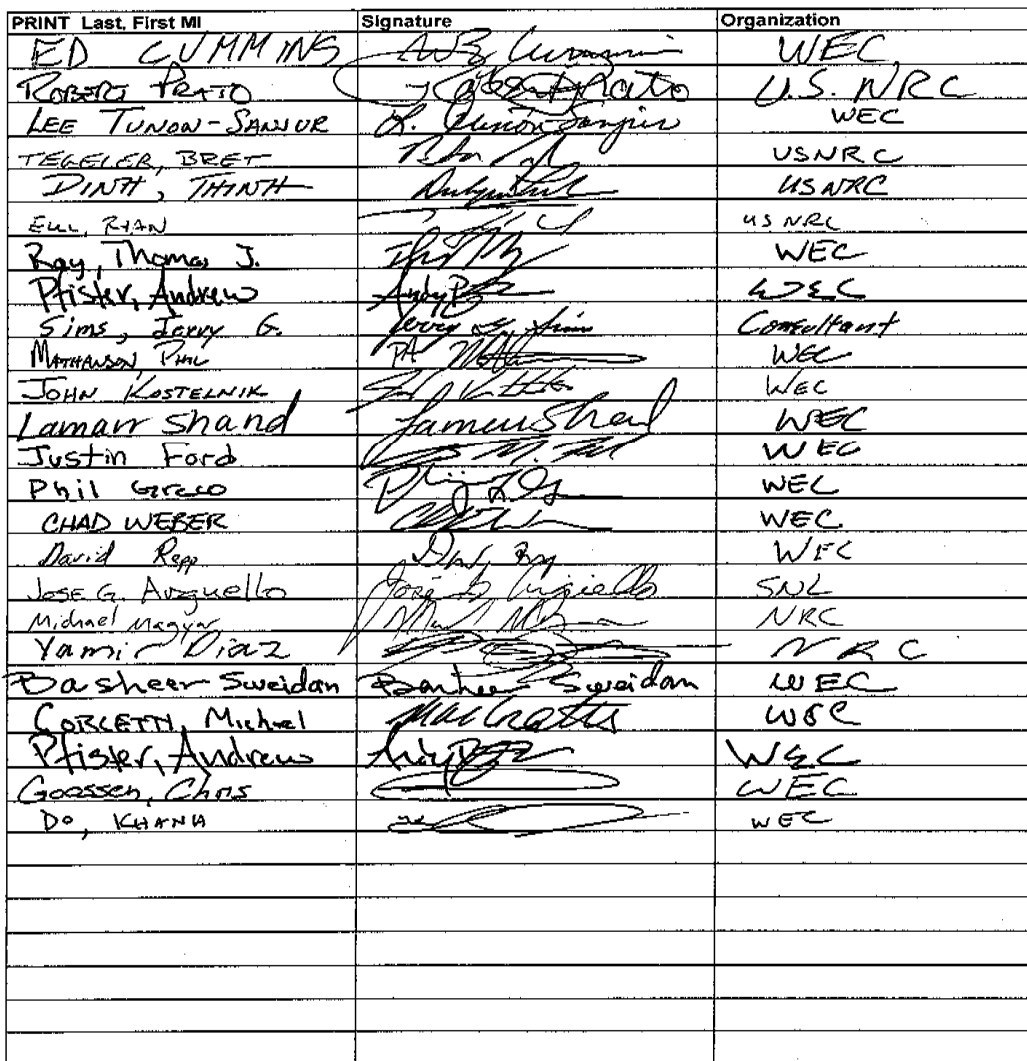 PRINT Last, First MI Signature Organization
ED CUMMINS Cummins WEC
ROBERT PRATO Robert Prato U.S. NRC
LEE TUNON-SANJUR L. Tunon-Sanjur WEC
TEGELER, BRET USNRC
DINH, THINH USNRC
RYAN US NRC
Ray, Thomas J. WEC
Pfister, Andrew Andy WEC
Sims, Jerry G. Jerry G. Sims Consultant
MATHANSON, PHIL PA WEC
JOHN KOSTELNIK WEC
Lamarr Shand Lamarr Shand WEC
Justin Ford WEC
Phil Greco WEC
CHAD WEBER WEC
David Repp WEC
JOSE G. Arguello José G Arguello SNL
Michael Magyar NRC
Yamir Diaz NRC
Basheer Sweidan Basheer Sweidan WEC
CORLETTI, Michael WEC
Pfister, Andrew Andy WEC
Goossen, Chris WEC
DO, KHANH WEC